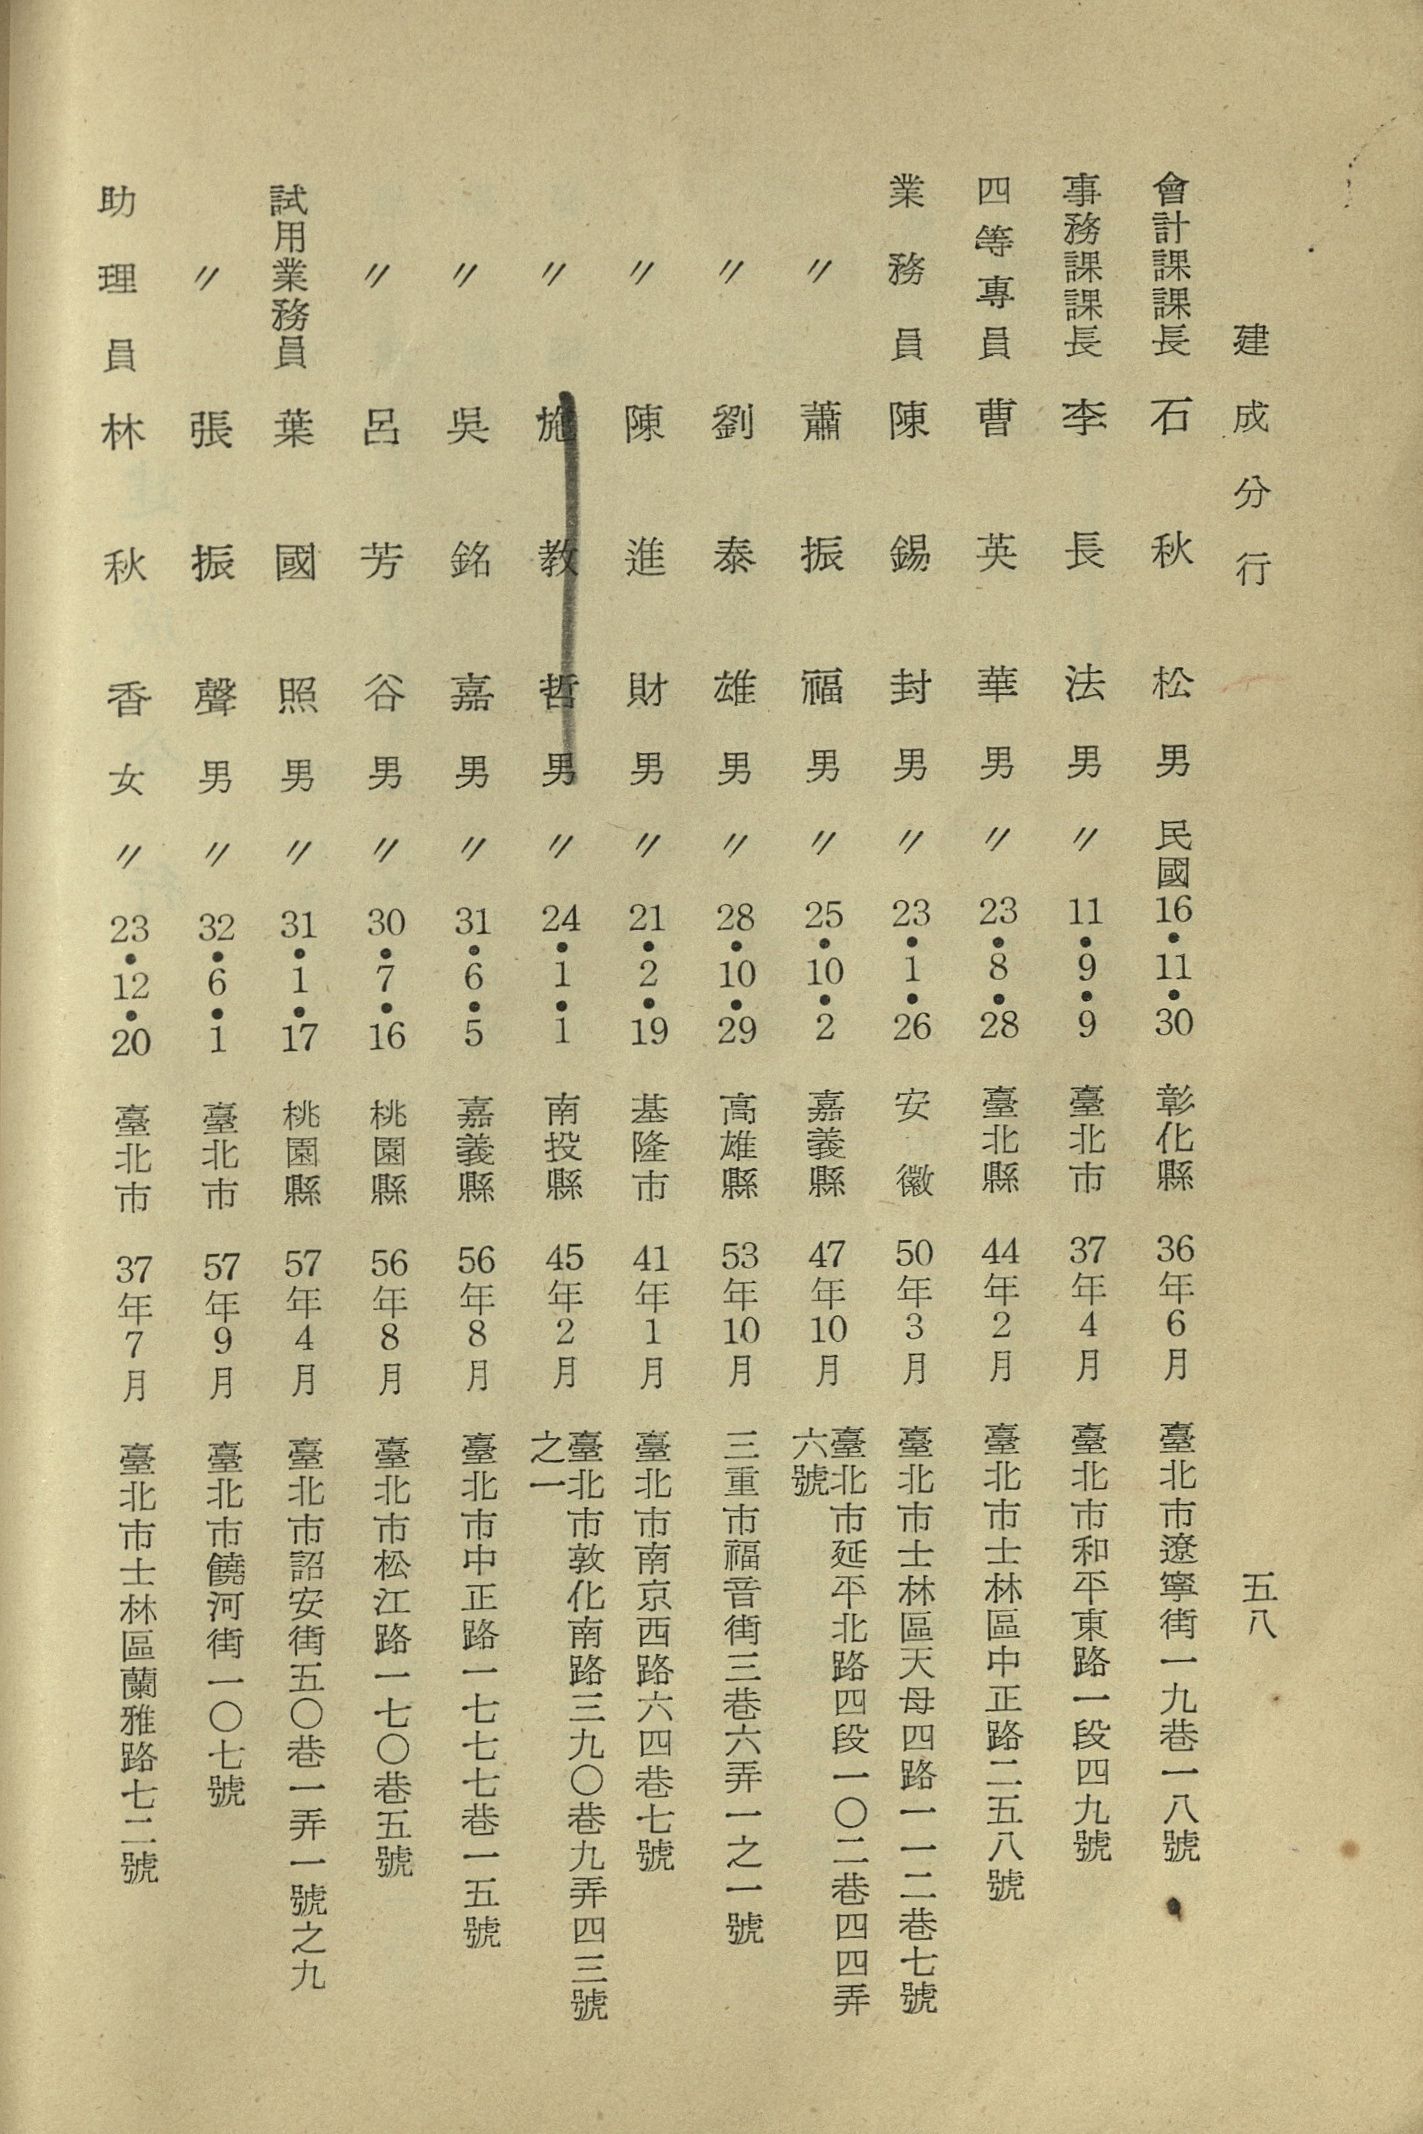 建成分行　五八
會計課課長　石秋松　男　民國16•11•30　彰化縣　36年6月　臺北市遼寧街一九巷一八號
事務課課長　李長法　男　〃　11•9•9　臺北市　37年4月　臺北市和平東路一段四九號
四等專員　曹英華　男　〃　23•8•28　臺北縣　44年2月　臺北市士林區中正路二五八號
業務員　陳錫封　男　〃　23•1•26　安徽　50年3月　臺北市士林區天母四路一一二巷七號
〃　蕭振福　男　〃　25•10•2　嘉義縣　47年10月　臺北市延平北路四段一〇二巷四四弄
六號
〃　劉泰雄　男　〃　28•10•29　高雄縣　53年10月　三重市福音街三巷六弄一之一號
〃　陳進財　男　〃　21•2•19　基隆市　41年1月　臺北市南京西路六四巷七號
〃　施教哲　男　〃　24•1•1　南投縣　45年2月　臺北市敦化南路三九〇巷九弄四三號
之一
〃　吳銘嘉　男　〃　31•6•5　嘉義縣　56年8月　臺北市中正路一七七七巷一五號
〃　呂芳谷　男　〃　30•7•16　桃園縣　56年8月　臺北市松江路一七〇巷五號
試用業務員　葉國照　男　〃　31•1•17　桃園縣　57年4月　臺北市詔安街五〇巷一弄一號之九
〃　張振聲　男　〃　32•6•1　臺北市　57年9月　臺北市饒河街一〇七號
助理員　林秋香　女　〃　23•12•20　臺北市　37年7月　臺北市士林區蘭雅路七二號